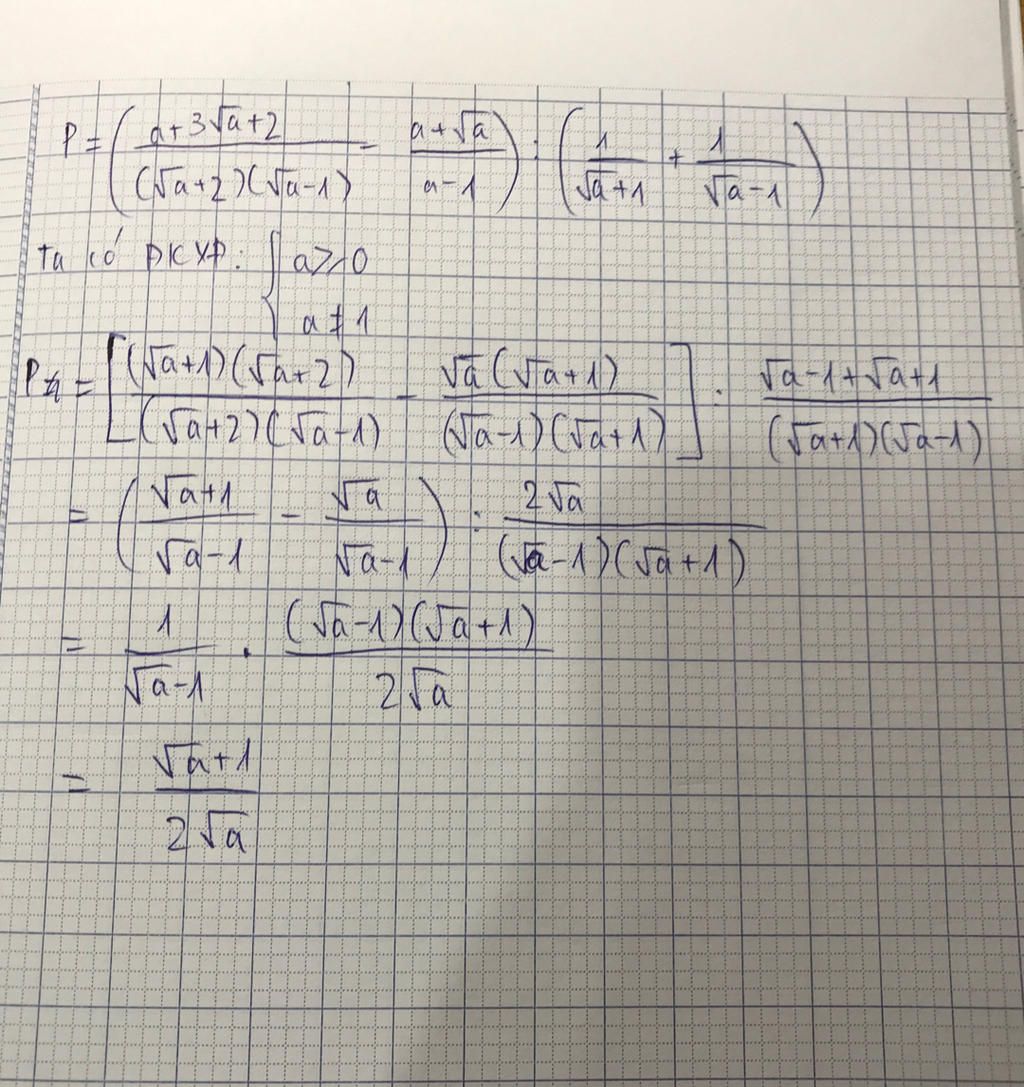 P = ( (a+3√a+2)/((√a+2)(√a-1)) - (a+√a)/(a-1) ) : ( 1/(√a+1) + 1/(√a-1) )
ta có ĐKXĐ: { a≥0
a≠1
P = [ ((√a+1)(√a+2))/((√a+2)(√a-1)) - (√a(√a+1))/((√a-1)(√a+1)) ] : (√a-1+√a+1)/((√a+1)(√a-1))
= ( (√a+1)/(√a-1) - √a/(√a-1) ) : 2√a/((√a-1)(√a+1))
= 1/(√a-1) . ((√a-1)(√a+1))/(2√a)
= (√a+1)/(2√a)